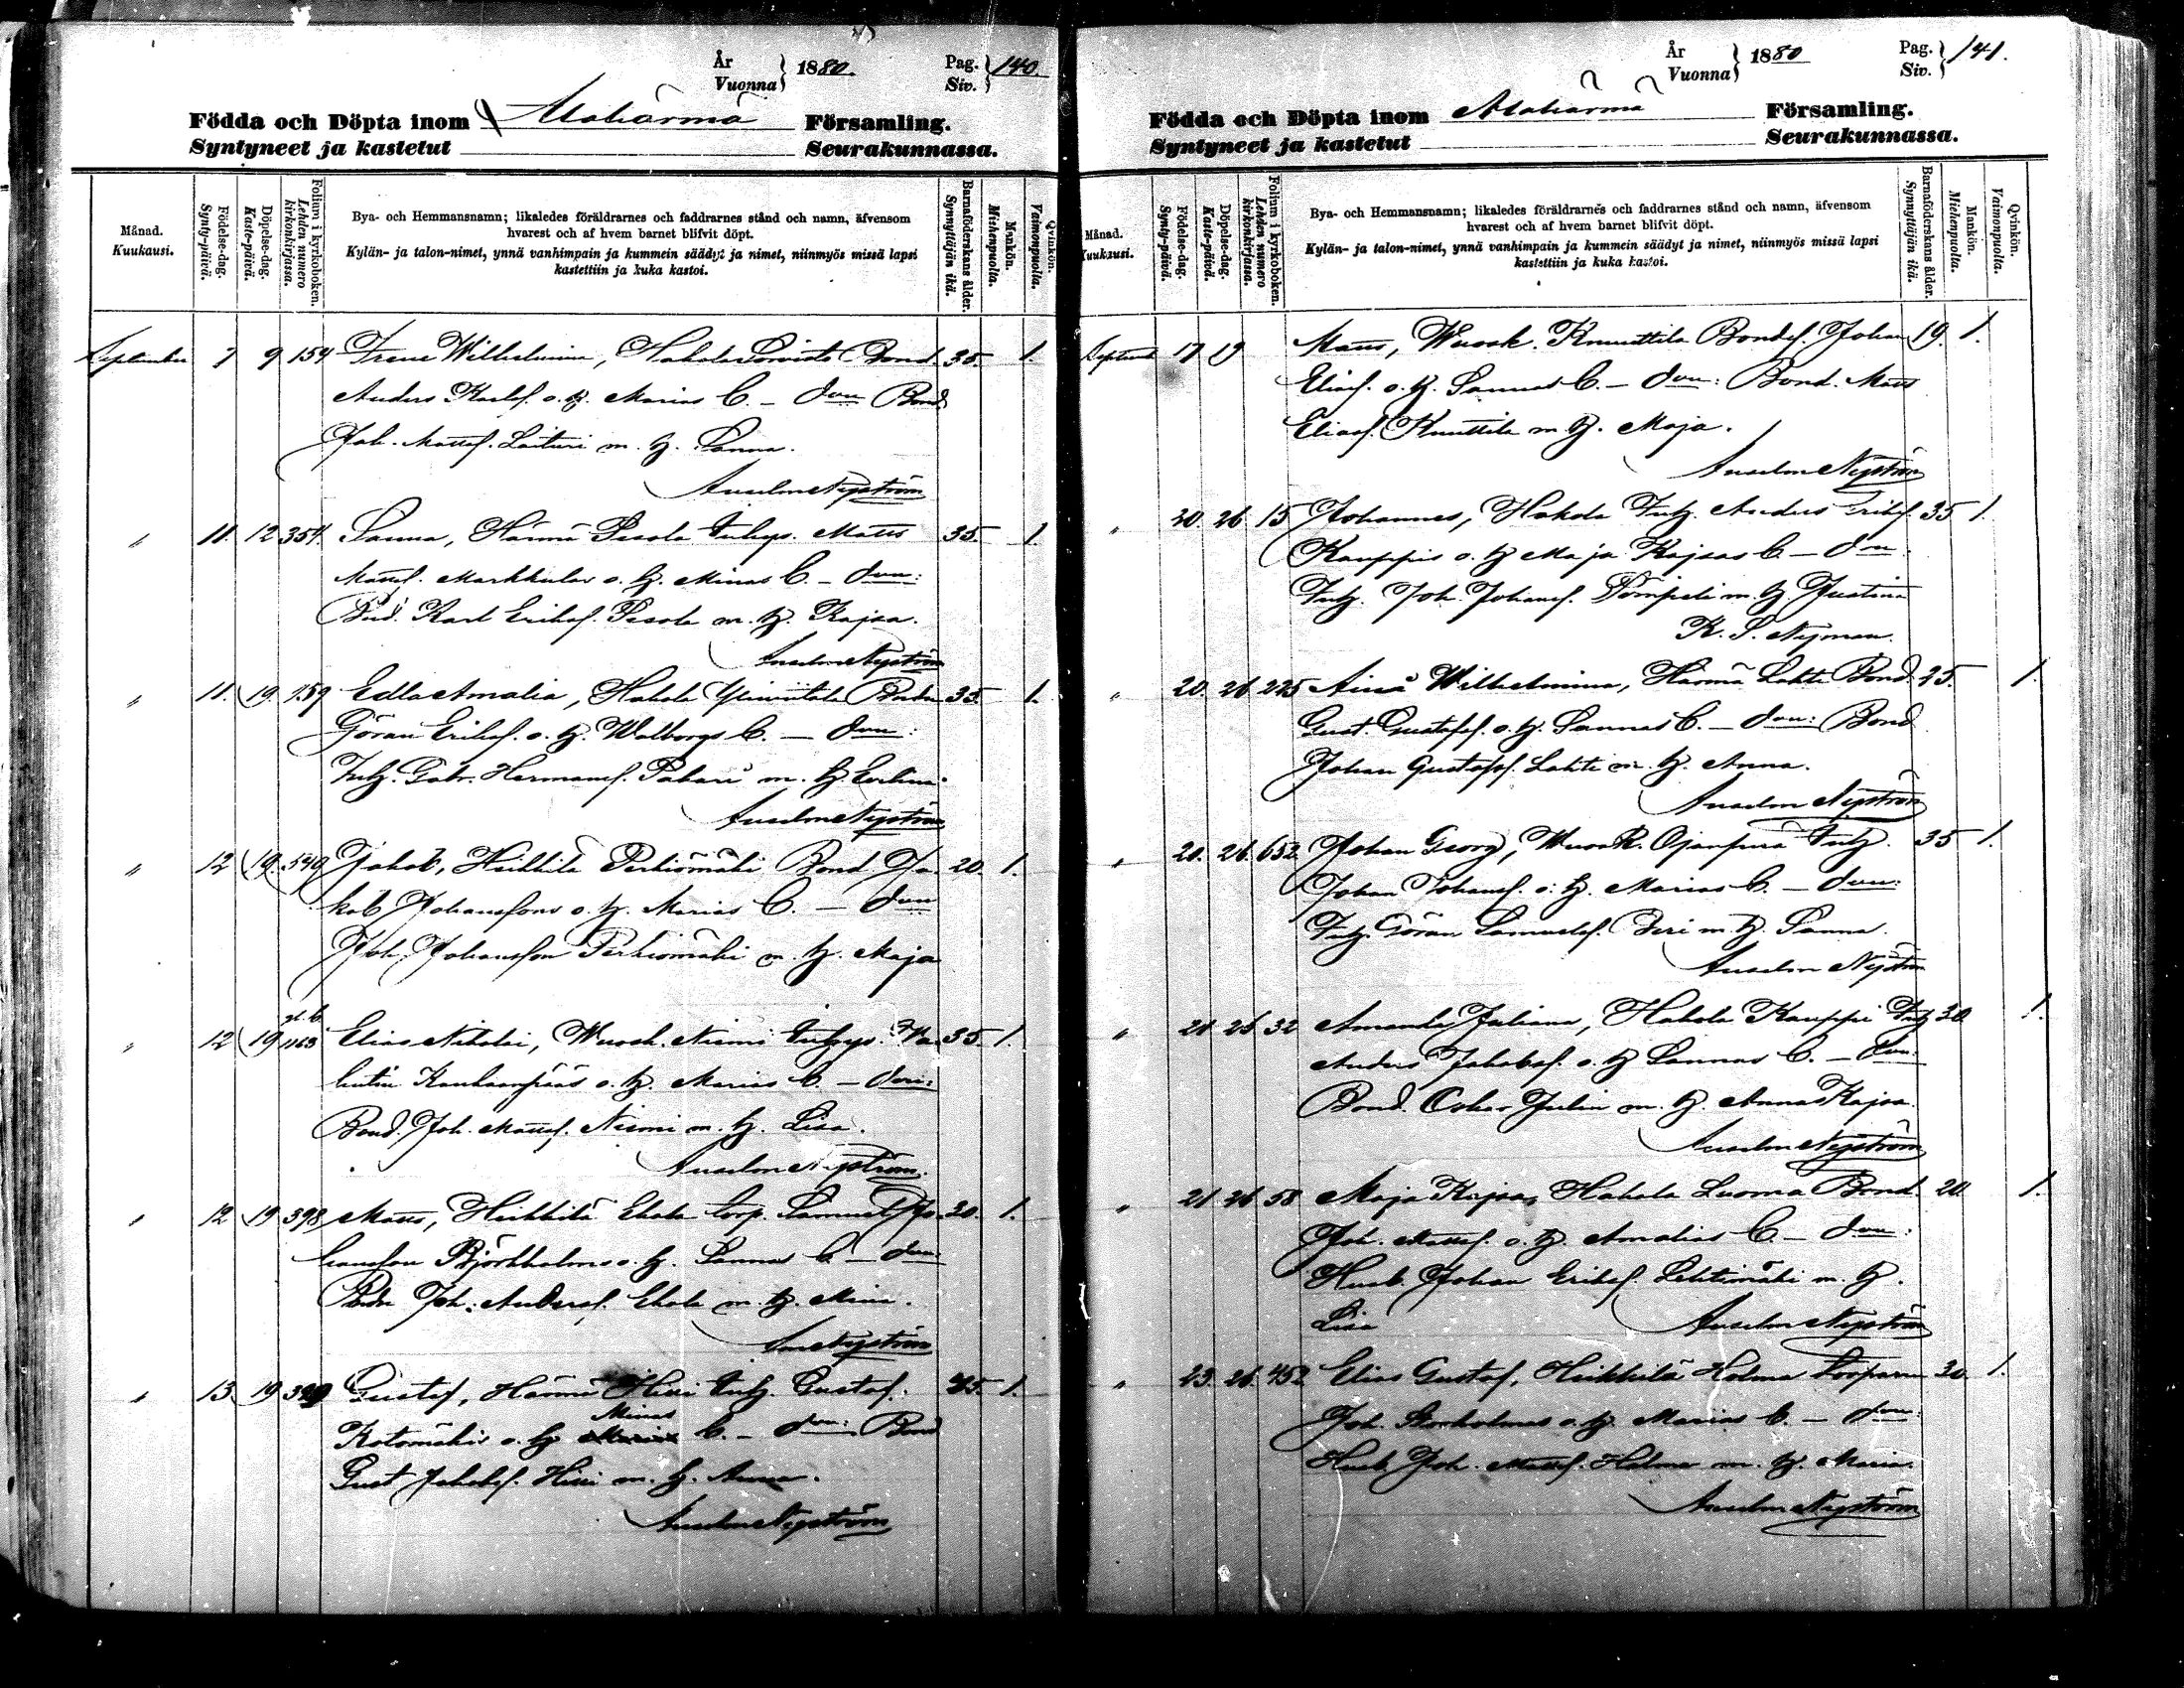 År
Vuonna } 1880. Pag.
Siv. } 140.
Födda och Döpta inom Alahärmä Församling.
Syntyneet ja kastetut Seurakunnassa.
Månad.
Kuukausi.
Födelse-dag.
Synty-päivä.
Döpelse-dag.
Kaste-päivä.
Folium i kyrkoboken.
Lehden numero
kirkonkirjassa.
Bya- och Hemmansnamn; likaledes föräldrarnes och faddrarnes stånd och namn, äfvensom
hvarest och af hvem barnet blifvit döpt.
Kylän- ja talon-nimet, ynnä vanhimpain ja kummein säädyt ja nimet, niinmyös missä lapsi
kastettiin ja kuka kastoi.
Barnaföderskans ålder.
Synnyttäjän ikä.
Mankön.
Miehenpuolta.
Qvinkön.
Vaimonpuolta.
September 7 9 154 Irene Wilhelmina, Hakola Bond. 35. 1.
Anders Karlss. o. h. Marias b. – dvn Bond
Joh. Mattss. Laituri m. h. Sanna.
Anselm Nyström
" 11. 12 354. Sanna, Härmä Pesola Inhys. Matts 35. 1.
Mattss. Markkulas o. h. Minas b. – dvn:
Bond. Karl Erikss. Pesola m. h. Kajsa.
Anselm Nyström
" 11. 19. 159 Edla Amalia, Hakola Bonden 35. 1.
Göran Erikss. o. h. Walborgs b. – dvn:
Inh. Gabr. Hermanss. m. h. Evelina.
Anselm Nyström
" 12 19. 549 Jakob, Heikkilä Perkiömäki Bond. Ja- 20. 1.
kob Johanssons o. h. Marias b. – dvn
Joh. Johansson Perkiömäki m. h. Maja
" 12 19 1163 Elias Nikolai, Wuosk. Niemi Inhys. Va- 35. 1.
lentin Kankaanpääs o. h. Marias b. – dvn:
Bond. Joh. Mattss. Niemi m. h. Lisa.
Anselm Nyström.
" 12 19 398 Matts, Heikkilä Ekola Corp. Samuel Jo- 30. 1.
hansson Björkholms o. h. Sannas b. – dvn
Bonden Joh. Anderss. Ekola m. h. Mina.
Ans. Nyström
" 13. 19 Gustaf, Härmä Inh. Gustaf 1.
Kotomäkis o. h. Minas b. – dvn: Bond
Gust Jakobss. m. h. Anna.
Anselm Nyström
År
Vuonna } 1880 Pag.
Siv. } 141.
Födda och Döpta inom Alahärmä Församling.
Syntyneet ja kastetut Seurakunnassa.
Månad.
Kuukausi.
Födelse-dag.
Synty-päivä.
Döpelse-dag.
Kaste-päivä.
Folium i kyrkoboken.
Lehden numero
kirkonkirjassa.
Bya- och Hemmansnamn; likaledes föräldrarnes och faddrarnes stånd och namn, äfvensom
hvarest och af hvem barnet blifvit döpt.
Kylän- ja talon-nimet, ynnä vanhimpain ja kummein säädyt ja nimet, niinmyös missä lapsi
kastettiin ja kuka kastoi.
Barnaföderskans ålder.
Synnyttäjän ikä.
Mankön.
Miehenpuolta.
Qvinkön.
Vaimonpuolta.
Septemb 17 19 Matts, Wuosk. Knuuttila Bondes. Johan 19. 1.
Eliass. o. h. Sannas b. – dvn: Bond. Matts
Eliass. Knuuttila m. h. Maja.
Anselm Nyström
" 20. 26 15 Johannes, Hakola Inh. Anders Erikss. 35 1.
Kauppis o. h. Maja Kajsas b. – dvn.
Inh. Joh. Johanss. m. h. Justina
K. S. Nyman.
" 20. 26 225 Aina Wilhelmina, Härmä Lahti Bond. 25. 1.
Gust. Gustafss. o. h. Sannas b. – dvn: Bond
Johan Gustafss. Lahti m. h. Anna.
Anselm Nyström
" 20. 26. 652 Johan Georg, Wuosk. Ojanperä Inh. 35 1.
Johan Johanss. o. h. Marias b. – dvn:
Inh. Göran Samuelss. m. h. Sanna.
Anselm Nyström
" 21 26 32 Amanda Juliana, Hakola Kauppi Inh 30 1.
Anders Jakobss. o. h Sannas b. – dvn:
Bond. Oskar Julin m. h. Anna Kajsa.
Anselm Nyström
" 21 26 58 Maja Kajsa, Hakola Luoma Bond. 20 1.
Joh. Mattss. o. h. Amalias b – dvn:
Husb. Johan Erikss. Lehtimäki m. h.
Lisa Anselm Nyström
" 23. 26. 452 Elias Gustaf, Heikkilä Holma 30 1.
Joh. Storholms o. h. Marias b. – dvn:
Husb. Joh. Mattss. Holma m. h. Maria.
Anselm Nyström